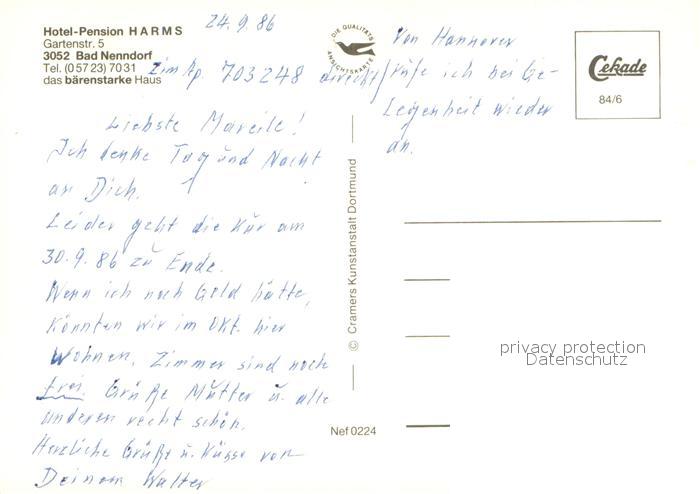 24.9.86
Hotel-Pension HARMS
Gartenstr. 5
3052 Bad Nenndorf
Tel. (05723) 7031
das bärenstarke Haus
Zim Ap. 703248 direkt
Liebste Mareile!
Ich denke Tag und Nacht
an Dich.
Leider geht die Kur am
30.9.86 zu Ende.
Wenn ich noch Geld hätte,
könnten wir im Okt. hier
Wohnen. Zimmer sind noch
frei. Grüße Mutter u. alle
anderen recht schön.
Herzliche Grüße u. Küsse von
Deinem Walter
DIE QUALITÄTS
ANSICHTSKARTE
© Cramers Kunstanstalt Dortmund
Nef 0224
Von Hannover
rufe ich bei Ge-
legenheit wieder
an.
Cekade
84/6
privacy protection
Datenschutz